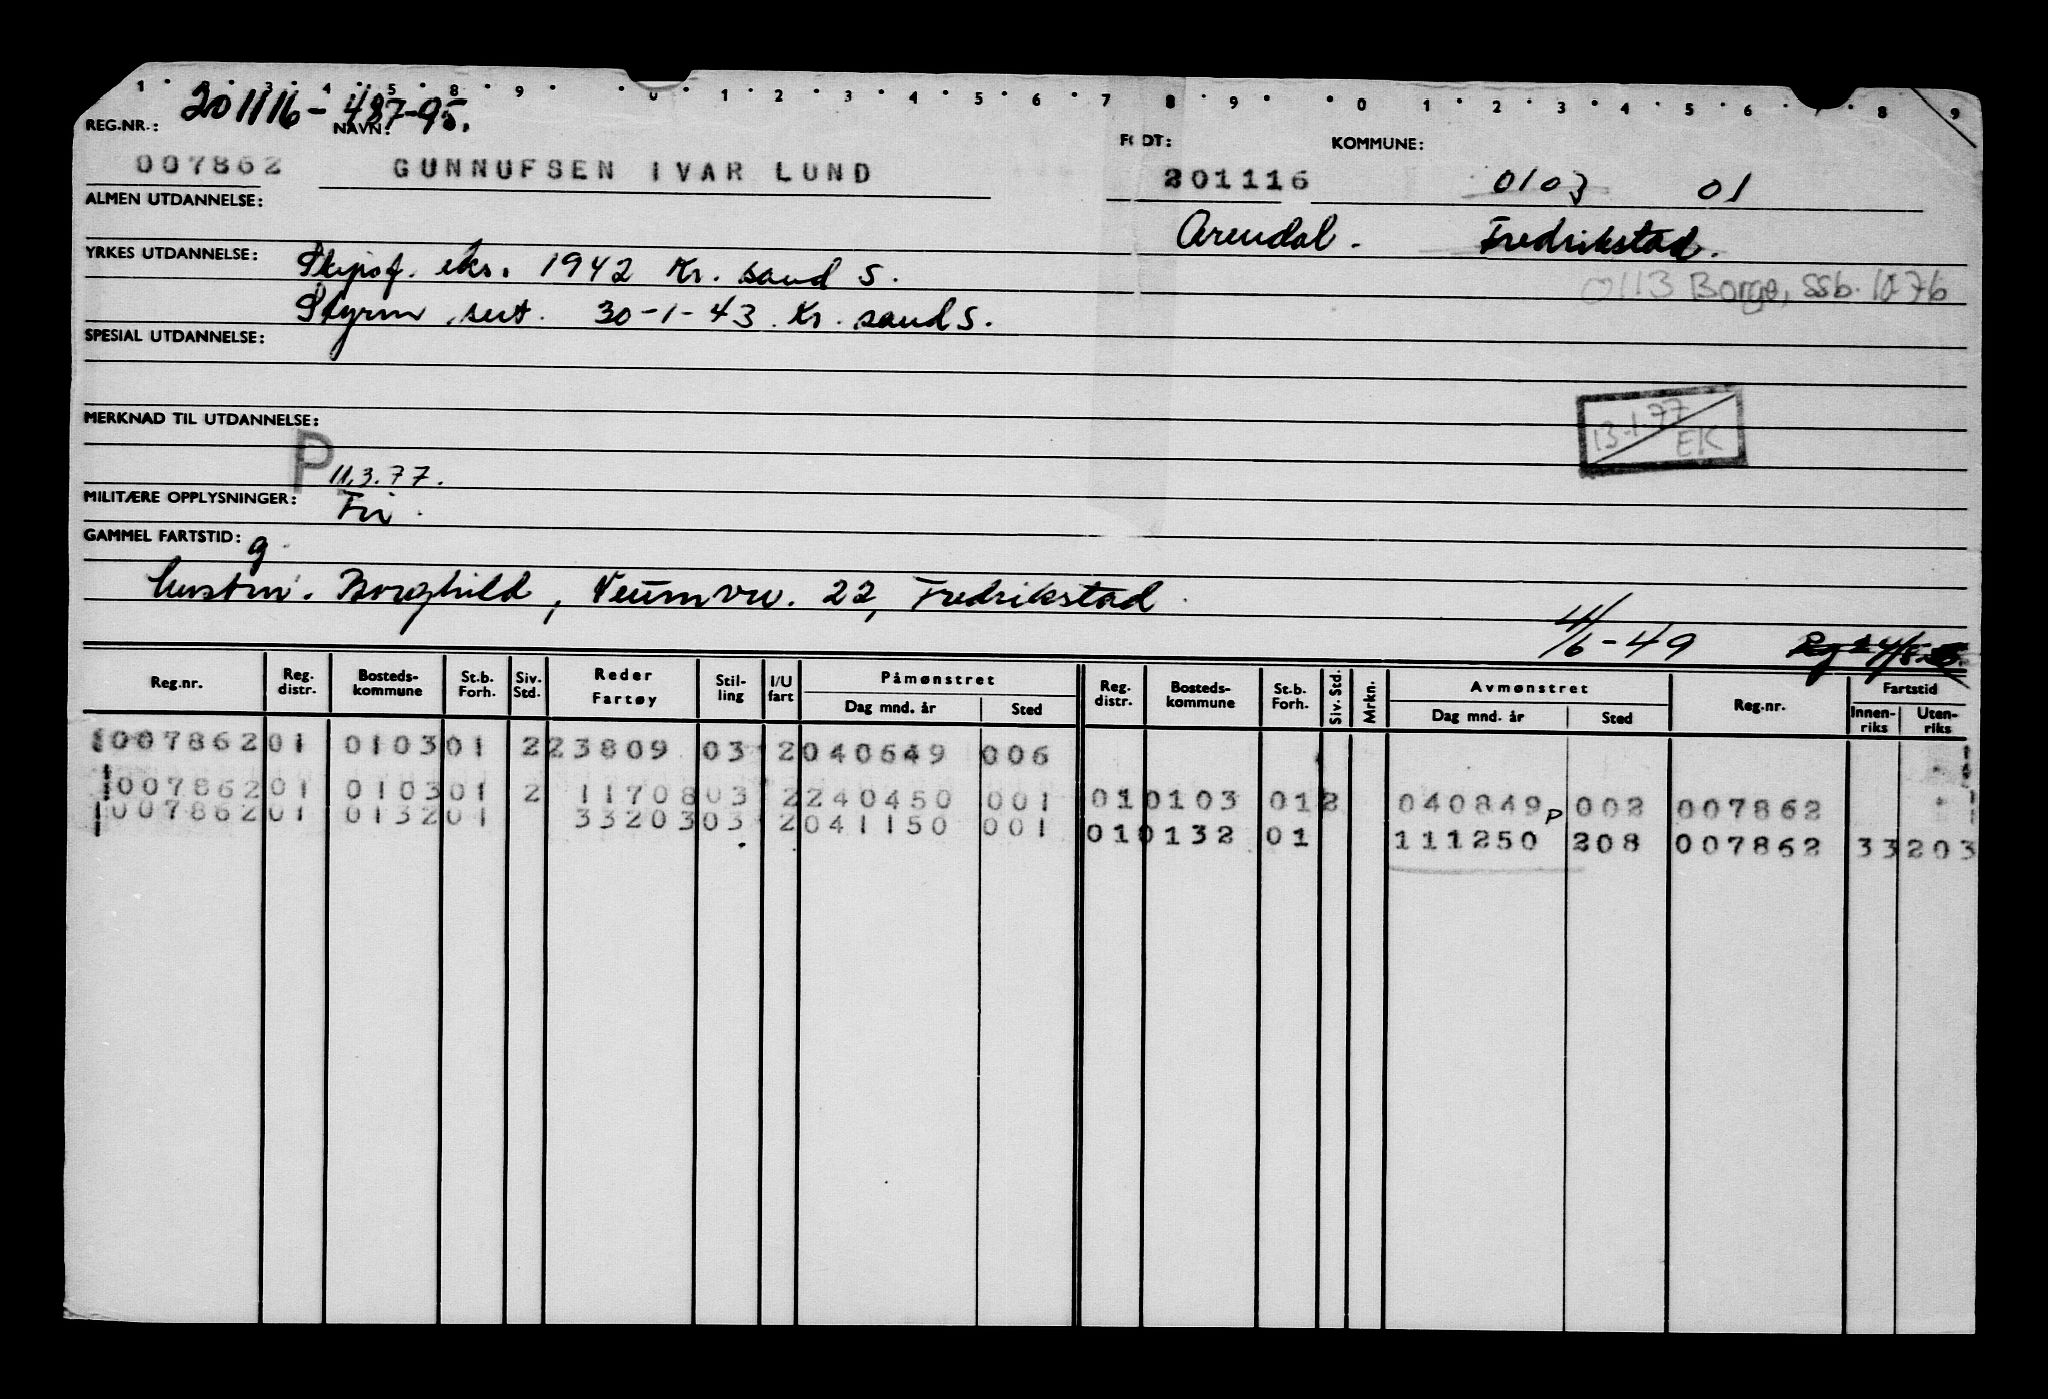 1 · 2 · 3 · 4 · 5 · 8 · 9 · · 0 · 1 · 2 · 3 · 4 · 5 · 6 · 7 · 8 · 9 · · 0 · 1 · 2 · 3 · 4 · 5 · 6 · 7 · 8 · 9
201116-487-95.
REG.NR.: NAVN: FØDT: KOMMUNE:
007862 GUNNUFSEN IVAR LUND 201116 0103 01
ALMEN UTDANNELSE:
Arendal. Fredrikstad.
YRKES UTDANNELSE: Skipsf. eks. 1942 Kr. sand S.
0113 Borge, ssb. 10-76
Styrm. sert. 30-1-43 Kr. sand S.
SPESIAL UTDANNELSE:
13-1-77
EK
MERKNAD TIL UTDANNELSE:
P 11.3.77.
MILITÆRE OPPLYSNINGER:
GAMMEL FARTSTID: g
Hustru. Borghild, Veumvn. 22, Fredrikstad
4/6-49
Reg.nr. Reg. distr. Bosteds-kommune St.b. Forh. Siv. Std. Reder Fartøy Stil-ling I/U fart Påmønstret Dag mnd. år Sted Reg. distr. Bosteds-kommune St.b. Forh. Siv. Std. Mrkn. Avmønstret Dag mnd. år Sted Reg.nr. Fartstid Innen-riks Uten-riks
007862 01 0103 01 2 23809 03 2 040649 006
007862 01 0103 01 2 11708 03 2 240450 001 01 0103 01 2 040849 P 002 007862
007862 01 0132 01 33203 03 2 041150 001 01 0132 01 111250 208 007862 33203